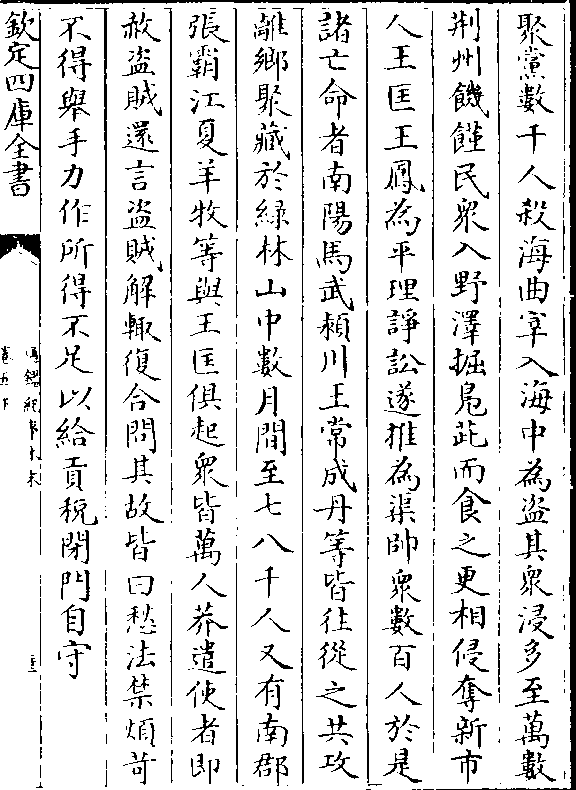 聚黨數千人殺海曲宰入海中為盜其衆浸多至萬數
荆州饑饉民衆入野澤掘鳬茈而食之更相侵奪新市
人王匡王鳳為平理諍訟遂推為渠帥衆數百人於是
諸亡命者南陽馬武潁川王常成丹等皆往從之共攻
離鄉聚藏於緑林山中數月間至七八千人又有南郡
張霸江夏羊牧等與王匡俱起衆皆萬人莽遣使者即
赦盜賊還言盜賊解輒復合問其故皆曰愁法禁煩苛
不得舉手力作所得不足以給貢稅閉門自守
欽定四庫全書
卷五下